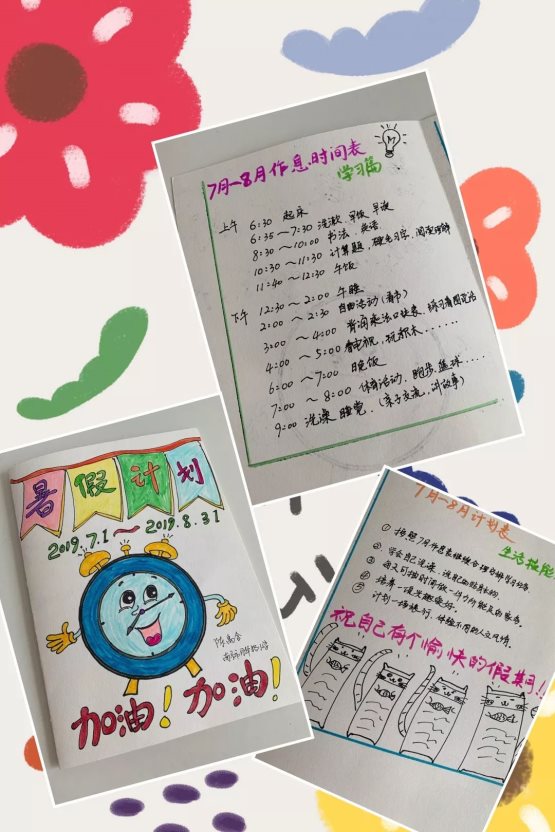 7月-8月作息时间表
学习篇
上午 6:30 起床
6:35~7:30 洗漱、早饭、早读
8:30~10:00 书法、英语
10:30~11:30 计算题、硬笔习字、阅读理解
11:40~12:30 午饭
下午 12:30~2:00 午睡
2:00~2:30 自由活动(看书)
3:00~4:00 背诵乘法口诀表、练习看图说话
4:00~5:00 看电视、玩积木......
6:00~7:00 晚饭
7:00~8:00 体育活动、跑步、篮球....
9:00 洗澡 睡觉.(亲子交流,讲故事)
暑假计划
2019.7.1~2019.8.31
加油!加油!
7月-8月计划表
生活技能
① 按照7月作息表
② 学会自己洗澡、洗自己的
③ 每天可抽时间做一件力所能及的家务。
④ 培养一项兴趣爱好。
⑤ 计划一场旅行,体验不同的人文风情。
祝自己有个愉快的假期!!